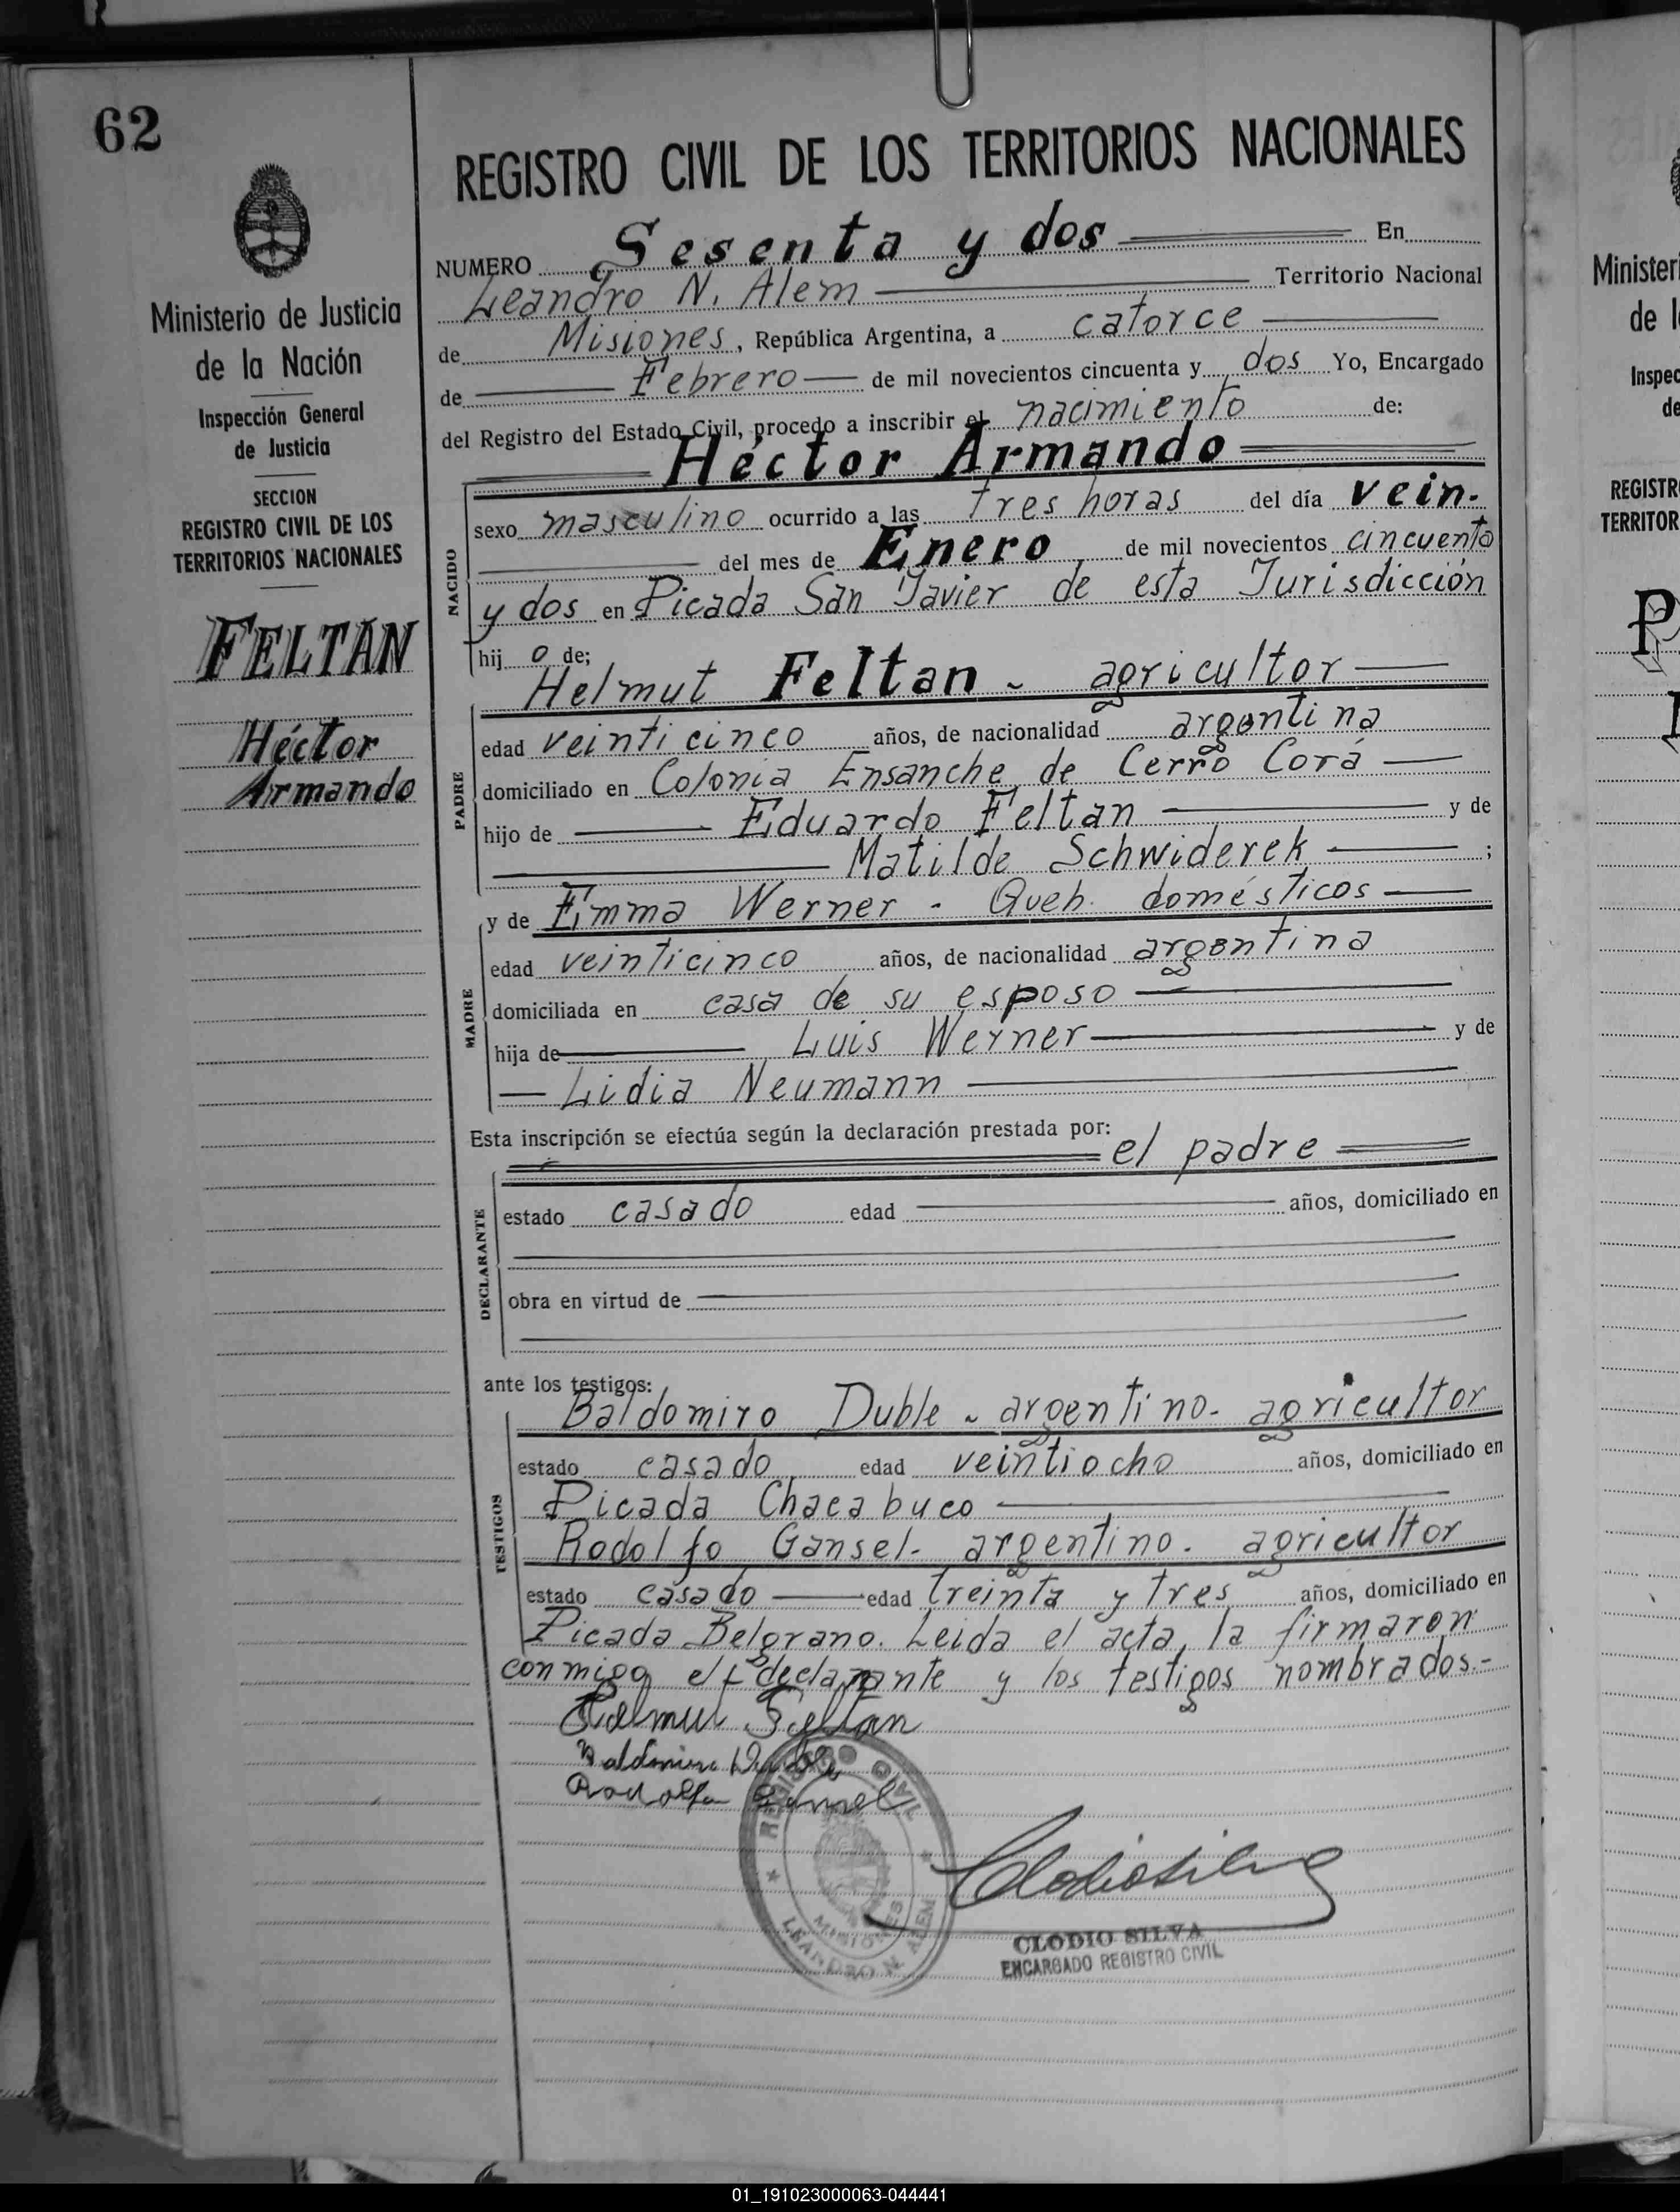 62
Ministerio de Justicia
de la Nación
Inspección General
de Justicia
SECCION
REGISTRO CIVIL DE LOS
TERRITORIOS NACIONALES
FELTAN
Héctor
Armando
REGISTRO CIVIL DE LOS TERRITORIOS NACIONALES
NUMERO Sesenta y dos En
Leandro N. Alem Territorio Nacional
de Misiones, República Argentina, a catorce
de Febrero de mil novecientos cincuenta y dos Yo, Encargado
del Registro del Estado Civil, procedo a inscribir el nacimiento de:
Héctor Armando
NACIDO
sexo masculino ocurrido a las tres horas del día vein-
del mes de Enero de mil novecientos cincuenta
y dos en Picada San Javier de esta Jurisdicción
hijo de;
Helmut Feltan - agricultor
PADRE
edad veinticinco años, de nacionalidad argentina
domiciliado en Colonia Ensanche de Cerro Corá
hijo de Eduardo Feltan y de
Matilde Schwiderek ;
y de Emma Werner - Queh. domésticos
MADRE
edad veinticinco años, de nacionalidad argentina
domiciliada en casa de su esposo
hija de Luis Werner y de
Lidia Neumann
Esta inscripción se efectúa según la declaración prestada por:
el padre
DECLARANTE
estado casado edad años, domiciliado en
obra en virtud de
ante los testigos:
Baldomiro Duble - argentino - agricultor
TESTIGOS
estado casado edad veintiocho años, domiciliado en
Picada Chacabuco
Rodolfo Gansel - argentino - agricultor
estado casado edad treinta y tres años, domiciliado en
Picada Belgrano. Leida el acta, la firmaron
conmigo el declarante y los testigos nombrados.-
Helmut Feltan
Baldomiro Duble
Rodolfo Gansel
REGISTRO CIVIL
MISIONES
LEANDRO N. ALEM
Clodio Silva
CLODIO SILVA
ENCARGADO REGISTRO CIVIL
Minister
de l
Inspec
de
REGISTR
TERRITOR
P
01_191023000063-044441